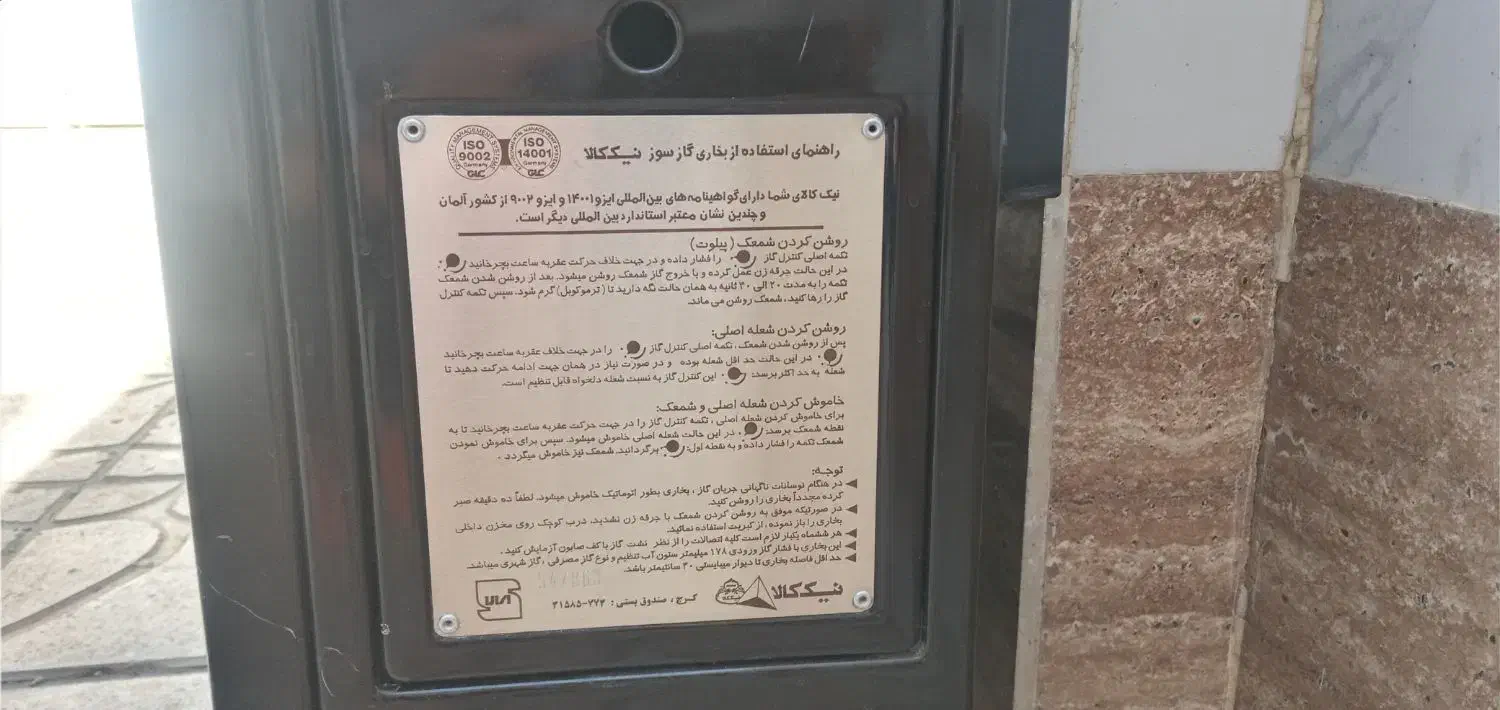 راهنمای استفاده از بخاری گاز سوز نیک‌کالا
QUALITY MANAGEMENT SYSTEMS
ISO
9002
Germany
GLC
ENVIRONMENTAL MANAGEMENT SYSTEMS
ISO
14001
Germany
GLC
نیک کالای شما دارای گواهینامه‌های بین‌المللی ایزو ۱۴۰۰۱ و ایزو ۹۰۰۲ از کشور آلمان
و چندین نشان معتبر استاندارد بین المللی دیگر است.
روشن کردن شمعک (پیلوت)
تکمه اصلی کنترل گاز را فشار داده و در جهت خلاف حرکت عقربه ساعت بچرخانید
در این حالت جرقه زن عمل کرده و با خروج گاز شمعک روشن میشود. بعد از روشن شدن شمعک
تکمه را به مدت ۲۰ الی ۳۰ ثانیه به همان حالت نگه دارید تا (ترموکوبل) گرم شود. سپس تکمه کنترل
گاز را رها کنید، شمعک روشن می ماند.
روشن کردن شعله اصلی:
پس از روشن شدن شمعک، تکمه اصلی کنترل گاز را در جهت خلاف عقربه ساعت بچرخانید
در این حالت حد اقل شعله بوده و در صورت نیاز در همان جهت ادامه حرکت دهید تا
شعله به حد اکثر برسد: این کنترل گاز به نسبت شعله دلخواه قابل تنظیم است.
خاموش کردن شعله اصلی و شمعک:
برای خاموش کردن شعله اصلی، تکمه کنترل گاز را در جهت حرکت عقربه ساعت بچرخانید تا به
نقطه شمعک برسد: در این حالت شعله اصلی خاموش میشود. سپس برای خاموش نمودن
شمعک تکمه را فشار داده و به نقطه اول: برگردانید. شمعک نیز خاموش میگردد.
توجه:
در هنگام نوسانات ناگهانی جریان گاز، بخاری بطور اتوماتیک خاموش میشود. لطفاً ده دقیقه صبر
کرده مجدداً بخاری را روشن کنید.
در صورتیکه موفق به روشن کردن شمعک با جرقه زن نشدید، درب کوچک روی مخزن داخلی
بخاری را باز نموده، از کبریت استفاده نمائید.
هر ششماه یکبار لازم است کلیه اتصالات را از نظر نشت گاز با کف صابون آزمایش کنید.
این بخاری با فشار گاز ورودی ۱۷۸ میلیمتر ستون آب تنظیم و نوع گاز مصرفی، گاز شهری میباشد.
حد اقل فاصله بخاری تا دیوار میبایستی ۳۰ سانتیمتر باشد.
نیک‌کالا
کرج، صندوق پستی: ۷۷۳-۳۱۵۸۵